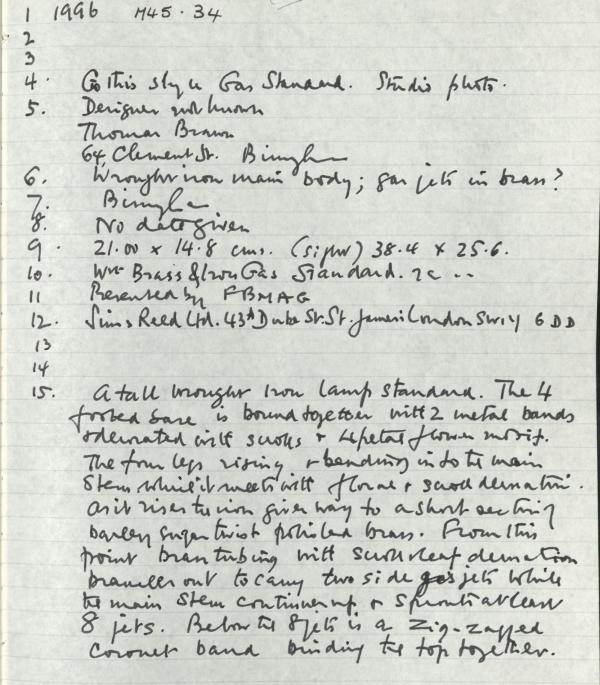 1 1996 M45.34
2
3
4. Gothic style Gas Standard. Studio photo.
5. Designer not known
Thomas Brawn
64, Clement St. Birmgham
6. Wrought iron main body; gas jets in brass?
7. Birmgham
8. No date given
9. 21.00 x 14.8 cms. (sight) 38.4 x 25.6.
10. Wrt Brass & Iron Gas Standard.
11 Presented by FBMAG
12. Sims Reed Ltd. 43A Duke St. St. James's London SW1Y 6DD
13
14
15. A tall wrought iron lamp standard. The 4
footed base is bound together with 2 metal bands
& decorated with scrolls & 4 petal flower motif.
The four legs rising & bending into the main
stem while it meets with floral & scroll decoration.
As it rises the iron gives way to a short section of
barley sugar twist polished brass. From this
point brass tubing with scroll leaf decoration
branches out to carry two side gas jets while
the main stem continues up & sprouts at least
8 jets. Below the 8 jets is a zig-zagged
coronet band binding the top together.